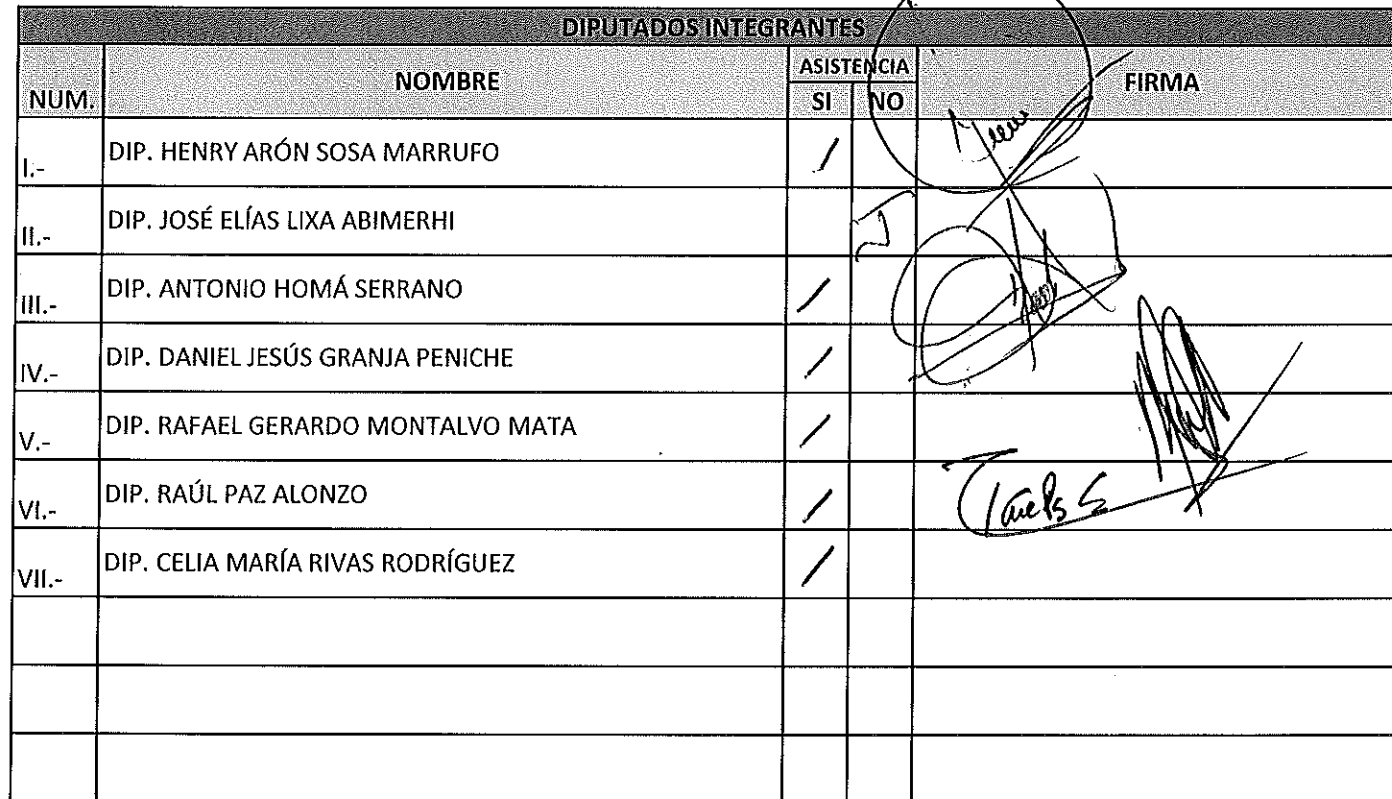 DIPUTADOS INTEGRANTES
NUM. NOMBRE ASISTENCIA FIRMA
SI NO
I.- DIP. HENRY ARÓN SOSA MARRUFO /
II.- DIP. JOSÉ ELÍAS LIXA ABIMERHI
III.- DIP. ANTONIO HOMÁ SERRANO /
IV.- DIP. DANIEL JESÚS GRANJA PENICHE /
V.- DIP. RAFAEL GERARDO MONTALVO MATA /
VI.- DIP. RAÚL PAZ ALONZO /
VII.- DIP. CELIA MARÍA RIVAS RODRÍGUEZ /